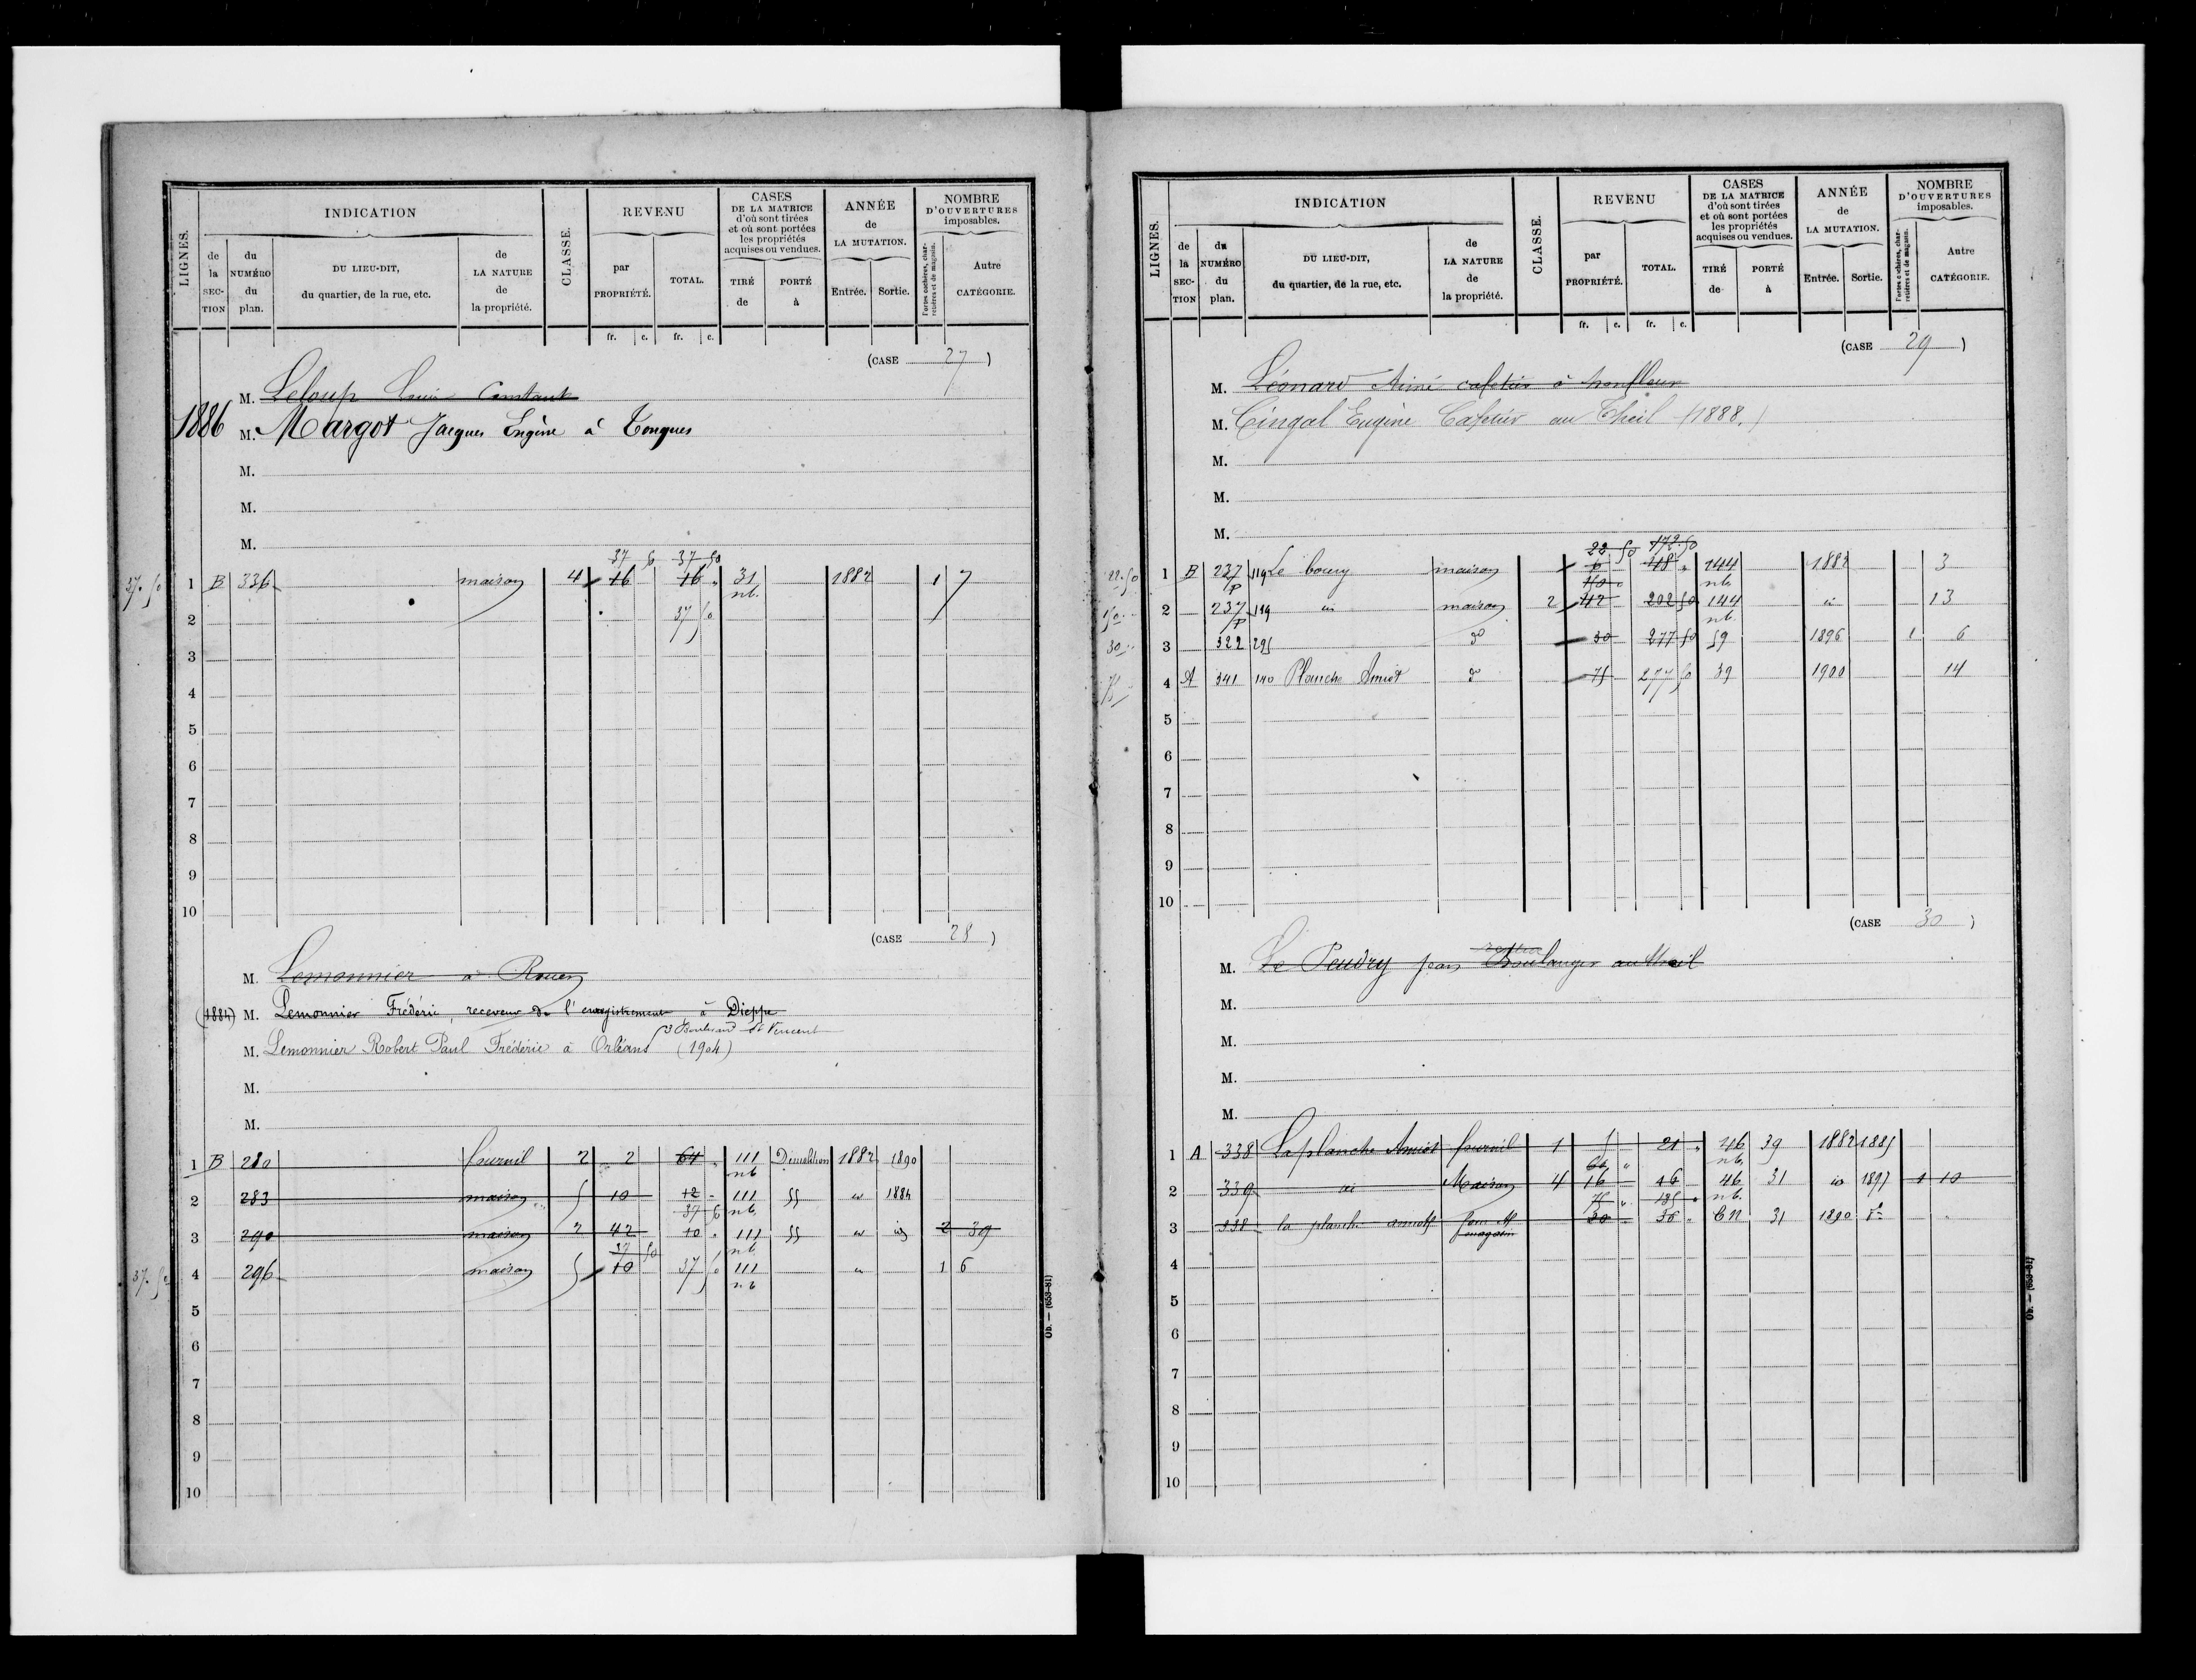 LIGNES. INDICATION CLASSE. REVENU CASES DE LA MATRICE d'où sont tirées et où sont portées les propriétés acquises ou vendues. ANNÉE de LA MUTATION. NOMBRE D'OUVERTURES imposables.
de la SECTION du NUMÉRO du plan. DU LIEU-DIT, du quartier, de la rue, etc. de LA NATURE de la propriété. par PROPRIÉTÉ. TOTAL. TIRÉ de PORTÉ à Entrée. Sortie. Portes cochères, charretières et de magasin. Autre CATÉGORIE.
fr. c. fr. c.
(CASE 27)
M. Leloup Louis Constant
1886 M. Margot Jacques Eugène à Tongues
M.
M.
M.
37 50 37 50
37.50 1 B 336 maison 4 16 16 " 31 nb. 1882 1 7
2 37 50
3
4
5
6
7
8
9
10
(CASE 28)
M. Lemonnier à Rouen
(1884) M. Lemonnier Frédéric, receveur de l'enregistrement à Dieppe
3 Boulevard St Vincent
M. Lemonnier Robert Paul Frédéric à Orléans (1904)
M.
M.
1 B 280 fournil 2 2 64 " 111 nb Démolition 1882 1890
2 283 maison 5 10 12 " 111 nb. 55 1884
37 50
3 290 maison 2 42 10 " 111 nb 55 2 39
37 50
37.50 4 296 maison 5 10 37 50 111 nb 1 6
5
6
7
8
9
10
Ob. — (653-81)
LIGNES. INDICATION CLASSE. REVENU CASES DE LA MATRICE d'où sont tirées et où sont portées les propriétés acquises ou vendues. ANNÉE de LA MUTATION. NOMBRE D'OUVERTURES imposables.
de la SECTION du NUMÉRO du plan. DU LIEU-DIT, du quartier, de la rue, etc. de LA NATURE de la propriété. par PROPRIÉTÉ. TOTAL. TIRÉ de PORTÉ à Entrée. Sortie. Portes cochères, charretières et de magasin. Autre CATÉGORIE.
fr. c. fr. c.
(CASE 29)
M. Léonard Aimé cafetier à honfleur
M. Cingal Eugène Cafetier au Theil (1888.)
M.
M.
M.
22 50 172.50
22.50 1 B 237 p 119 Le bourg maison 6 118 " 144 nb. 1882 3
150
150 2 237 p 119 maison 2 42 202 50 144 nb. 13
30 3 322 295 do 30 277 50 59 1896 1 6
75 4 A 341 140 Planche Amiot do 75 277 50 39 1900 14
5
6
7
8
9
10
(CASE 30)
M. Le Peudry jean Boulanger au theil
M.
M.
M.
M.
1 A 338 La planche Amiot fournil 1 5 21 " 46 nb. 39 1882 1885
60 "
2 339 Maison 4 16 46 46 nb. 31 1897 1 10
75 " 135 "
3 338 la planche amiot magasin 30 " 36 " CN 31 1890 do
4
5
6
7
8
9
10
Ob. — (653-81)